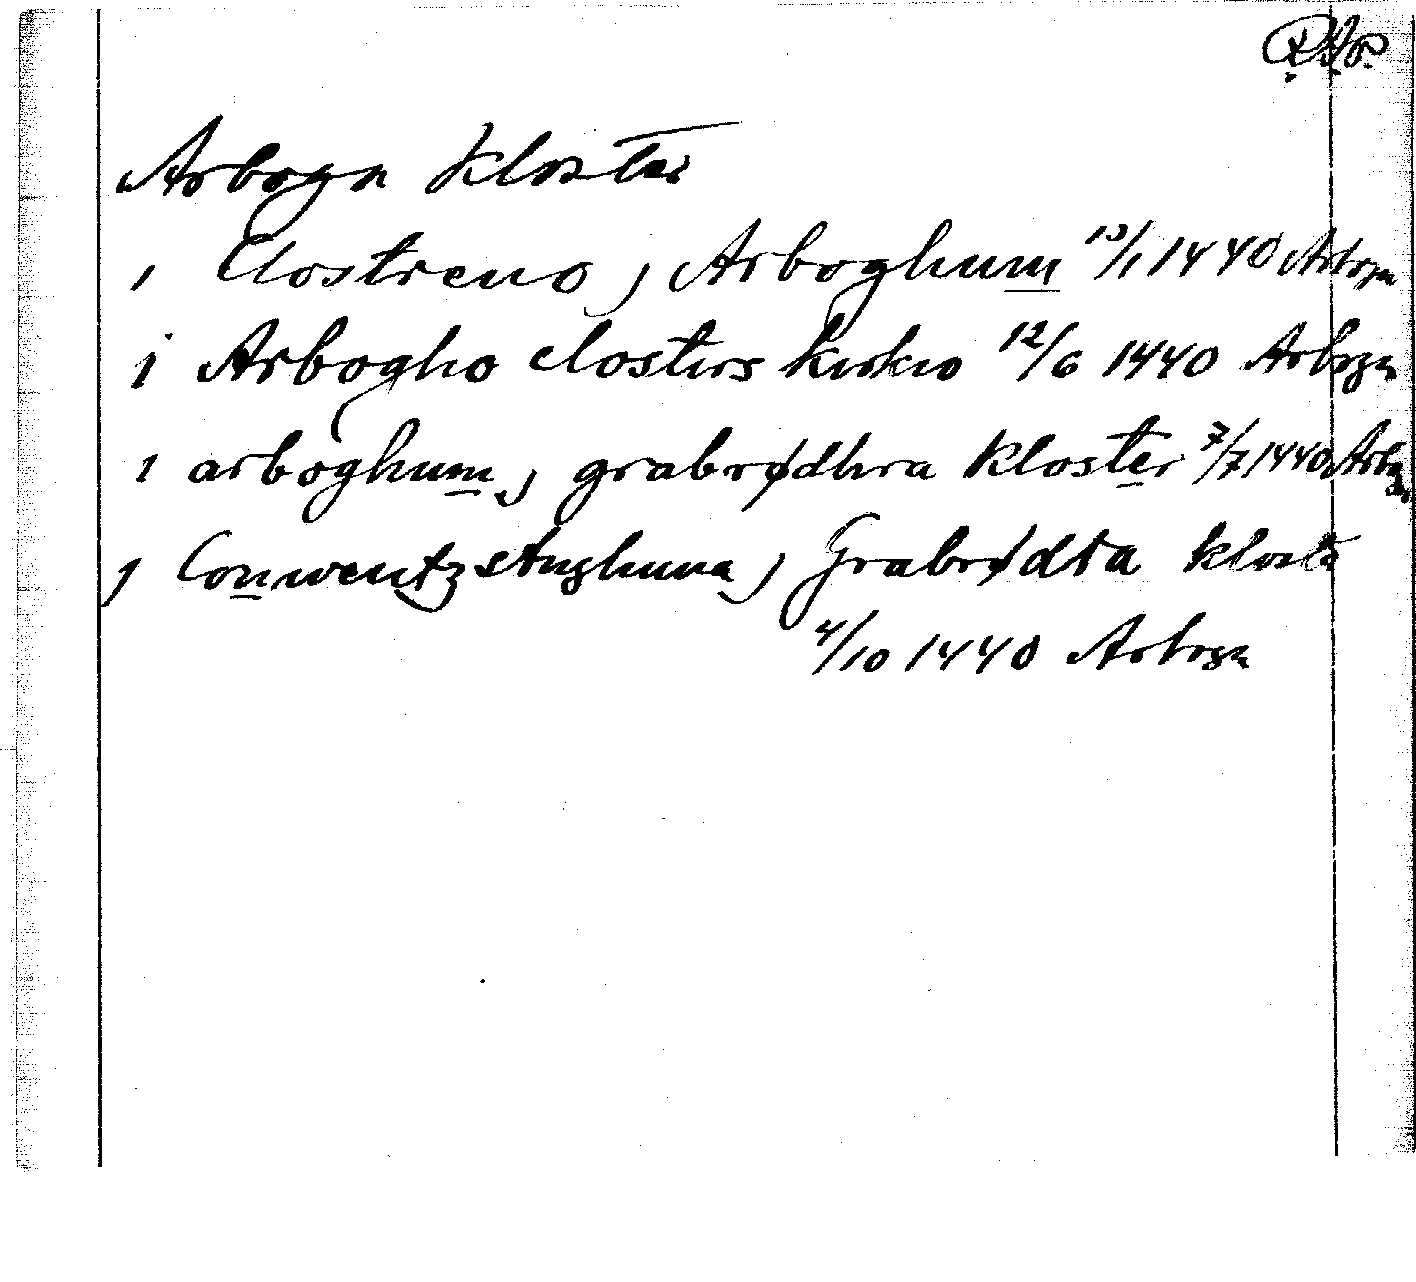 Arboga kloster
i Clostreno j Arboghum 13/1 1440 Arboga
i Arbogho closters kirkio 12/6 1440 Arboga
i arboghum j grabrødhra kloster 7/7 1440 Arboga
j Conwentz stughuna j Grabrødra kloster
4/10 1440 Arboga